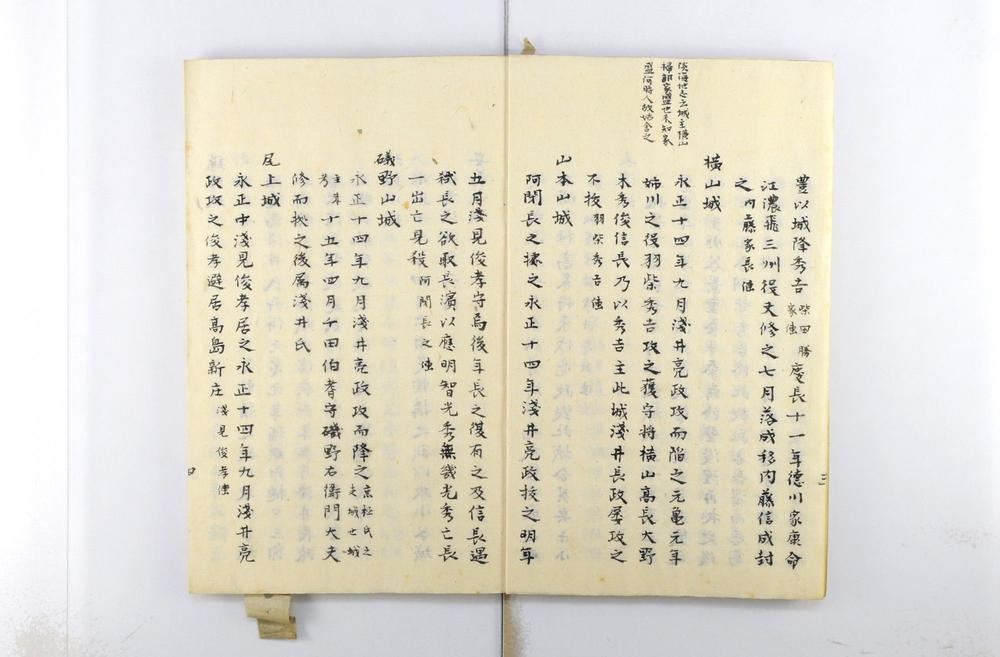 淡海地志云城主横山
掃部家盛也未知家
盛何時人故姑舍之
豊以城降秀吉柴田勝家伝慶長十一年徳川家康命
江濃飛三州役丈修之七月落成移内藤信成封
之内藤家長伝
横山城
永正十四年九月淺井亮政攻而陷之元亀元年
姉川之役羽柴秀吉攻之獲守将横山髙長大野
木秀俊信長乃以秀吉主此城淺井長政屡攻之
不抜羽柴秀吉伝
山本山城
阿閉長之據之永正十四年淺井亮政抜之明年
五月淺見俊孝守焉後年長之復有之及信長遇
弑長之欲取長濱以應明智光秀無幾光秀亡長
一出亡見殺阿閉長之伝
礒野山城
永正十四年九月淺井亮政攻而降之京極氏之支城也城
主再考十五年四月千田伯耆守磯野右衛門大夫
修而拠之後属淺井氏
尾上城
永正中淺見俊孝居之永正十四年九月淺井亮
政攻之俊孝避居高島新庄淺見俊孝伝
三
四